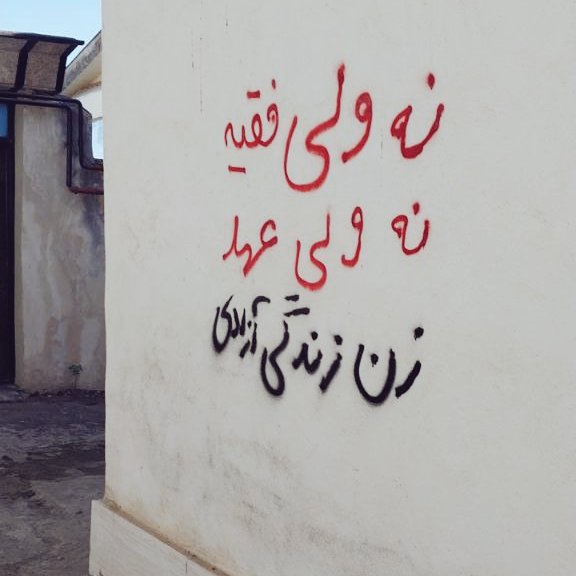 نه ولی فقیه
نه ولی عهد
زن زندگی آزادی